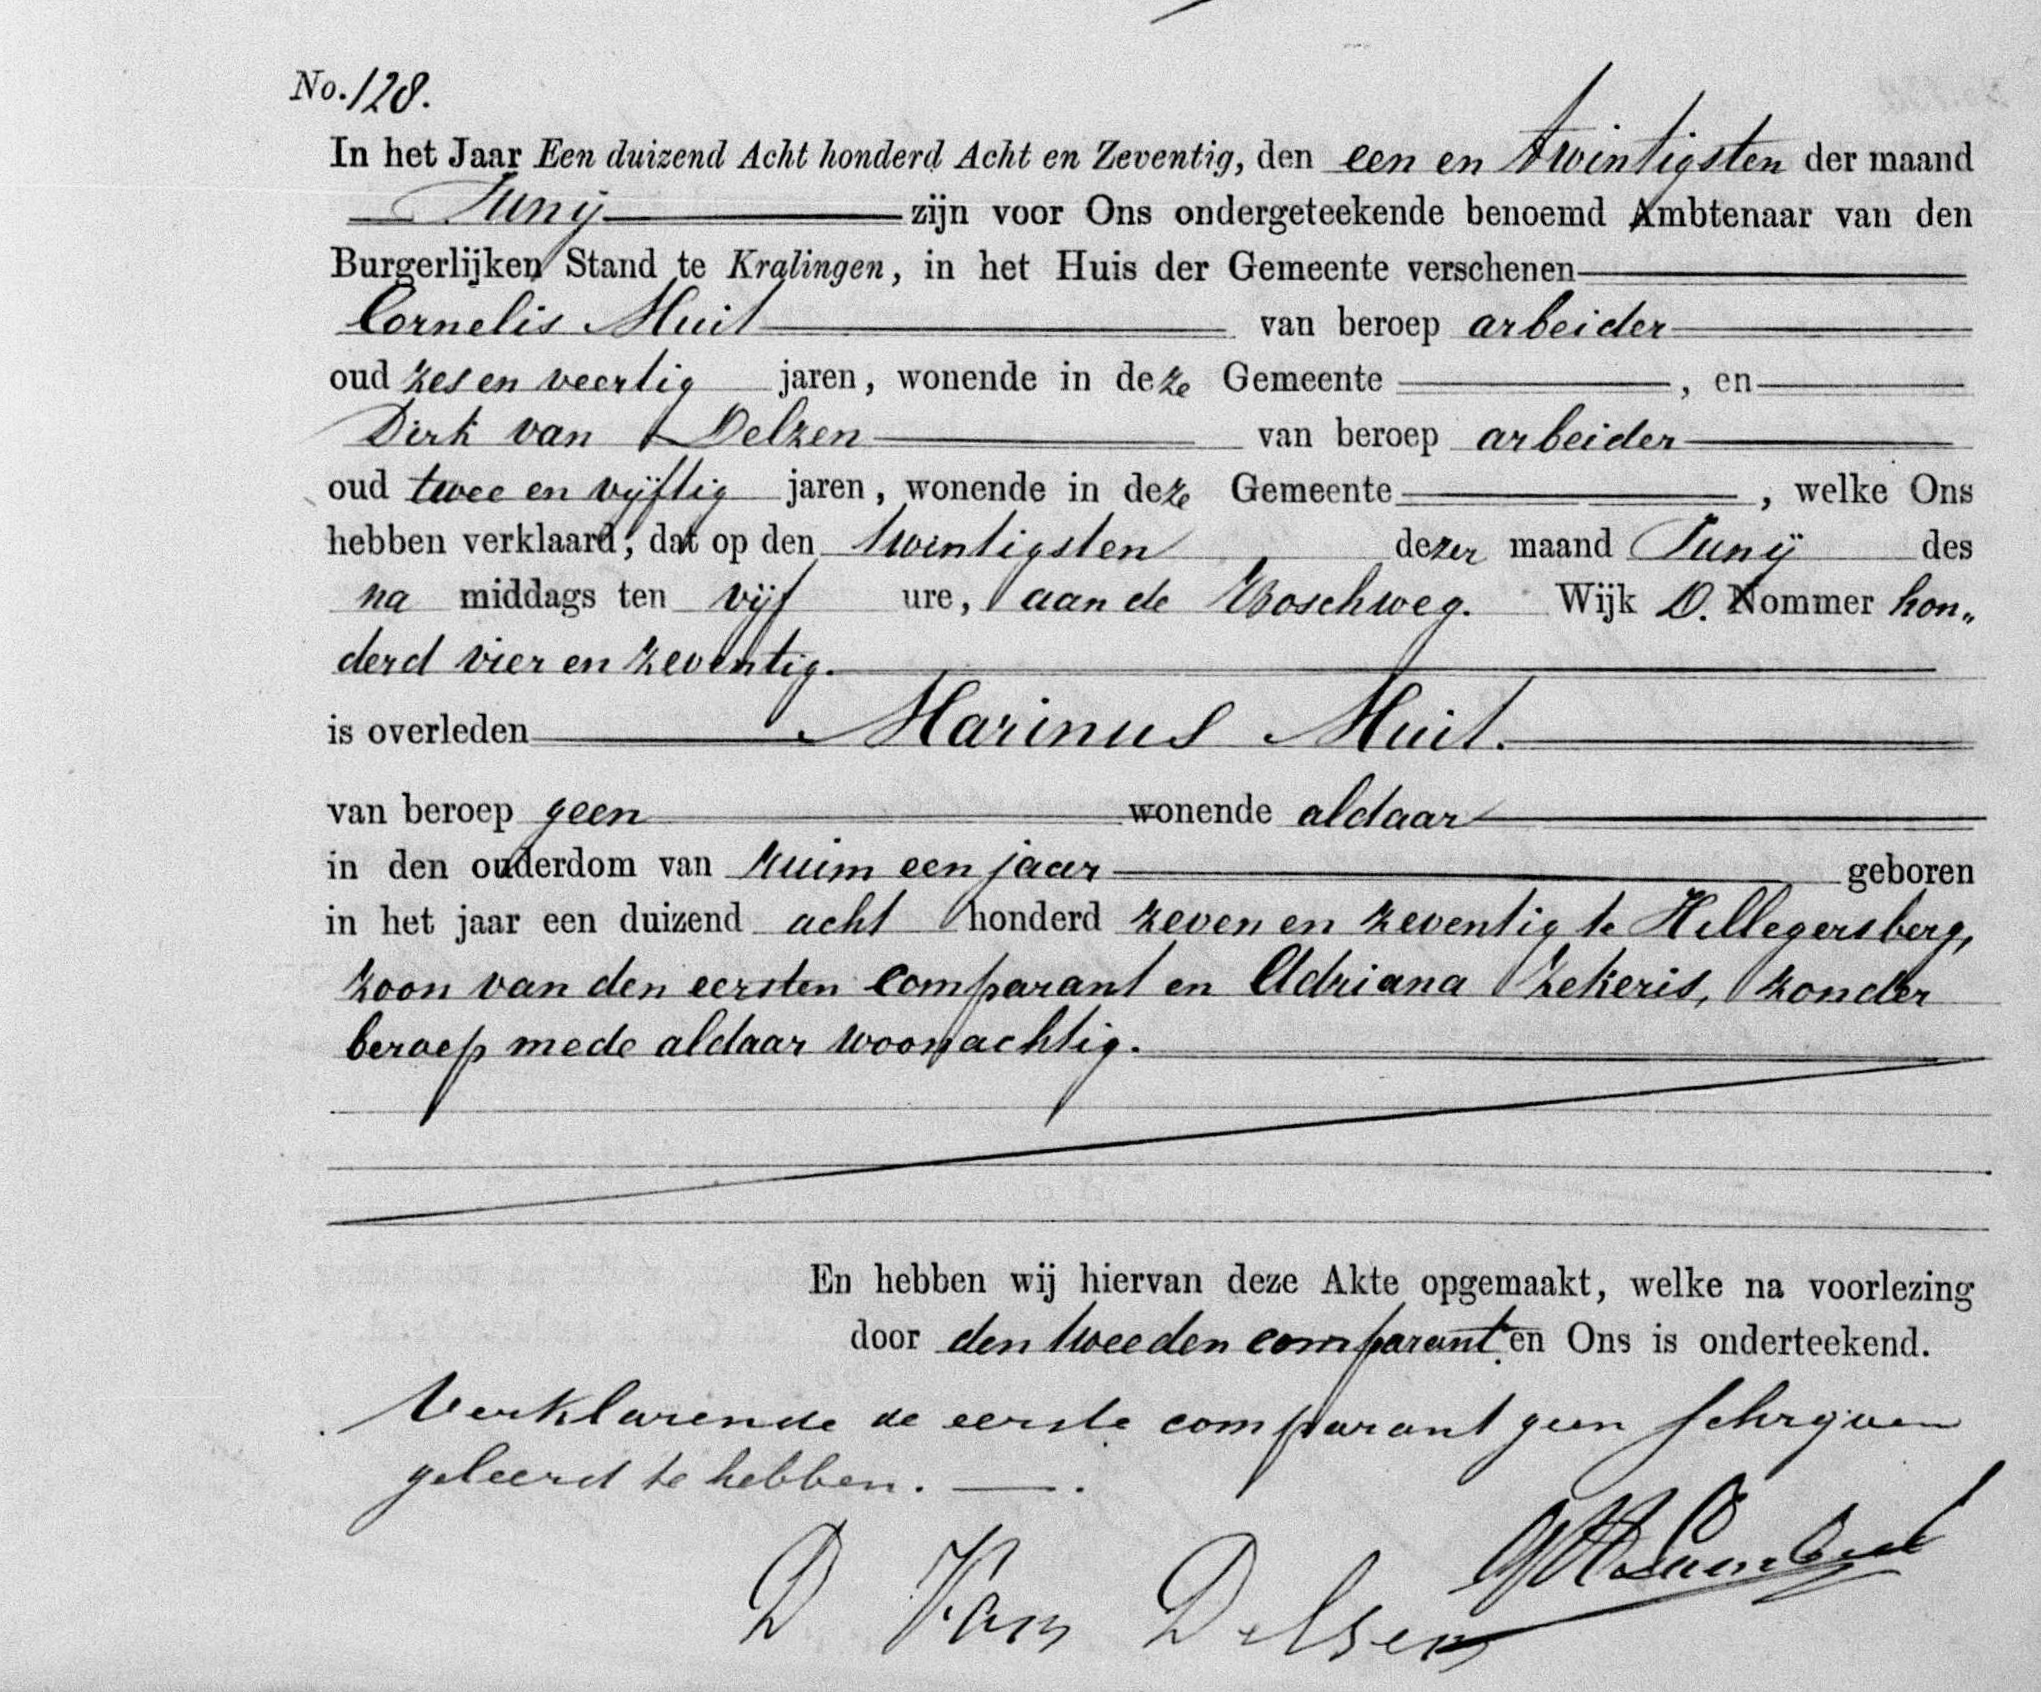 No. 128.
In het Jaar Een duizend Acht honderd Acht en Zeventig, den een en twintigsten der maand
Junij zijn voor Ons ondergeteekende benoemd Ambtenaar van den
Burgerlijken Stand te Kralingen, in het Huis der Gemeente verschenen
Cornelis Muit van beroep arbeider
oud zes en veertig jaren, wonende in deze Gemeente , en
Dirk van Delzen van beroep arbeider
oud twee en vijftig jaren, wonende in deze Gemeente , welke Ons
hebben verklaard, dat op den twintigsten dezer maand Junij des
na middags ten vijf ure, aan de Boschweg. Wijk D. Nommer hon„
derd vier en zeventig.
is overleden Marinus Muit.
van beroep geen wonende aldaar
in den ouderdom van ruim een jaar geboren
in het jaar een duizend acht honderd zeven en zeventig te Hillegersberg,
zoon van den eersten comparant en Adriana Zekeris, zonder
beroep mede aldaar woonachtig.
En hebben wij hiervan deze Akte opgemaakt, welke na voorlezing
door den tweeden comparant en Ons is onderteekend.
Verklarende de eerste comparant geen schrijven
geleerd te hebben.
D Van Delsen